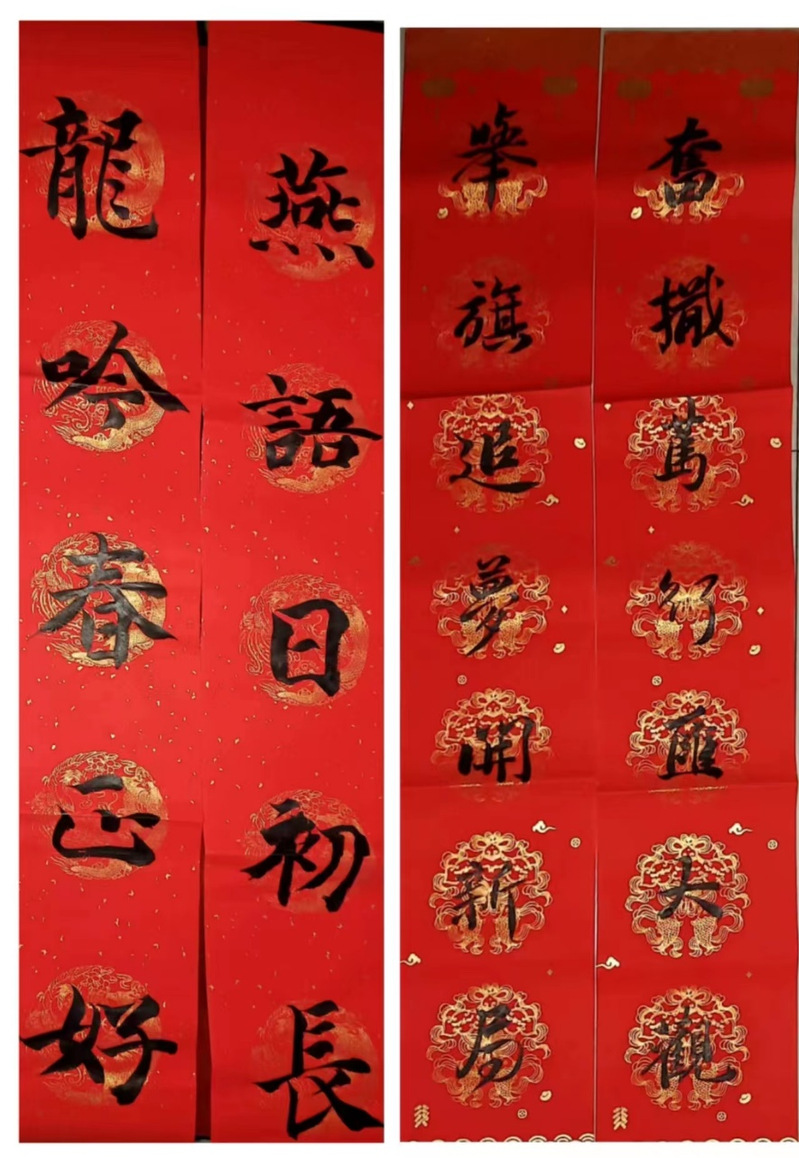 龍吟春正好
燕語日初長
舉旗追夢開新局
奮檝篤行匯大觀